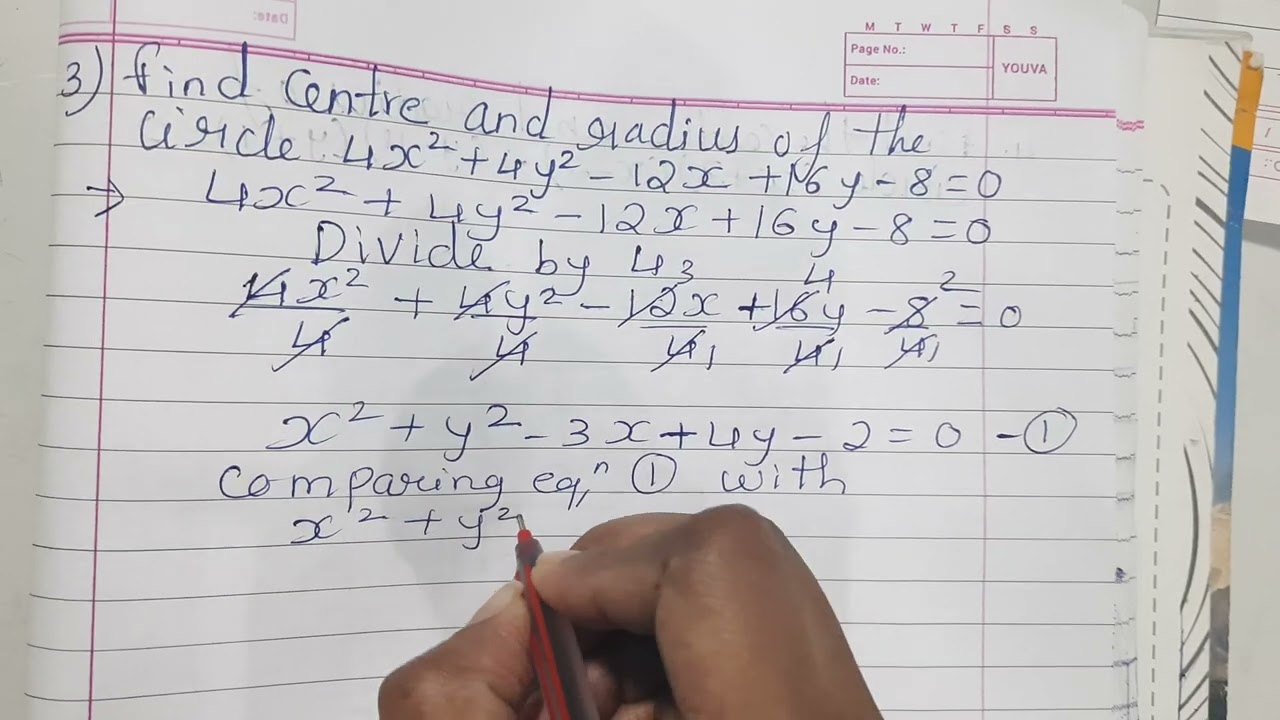 Date:
M T W T F S S
Page No.:
Date:
YOUVA
3) find centre and radius of the
circle 4x² + 4y² - 12x + 16y - 8 = 0
→ 4x² + 4y² - 12x + 16y - 8 = 0
Divide by 4
3 4 2
4x² + 4y² - 12x + 16y - 8 = 0
4 4 4 1 4 1 4 1
x² + y² - 3x + 4y - 2 = 0 - ①
comparing eqⁿ ① with
x² + y²